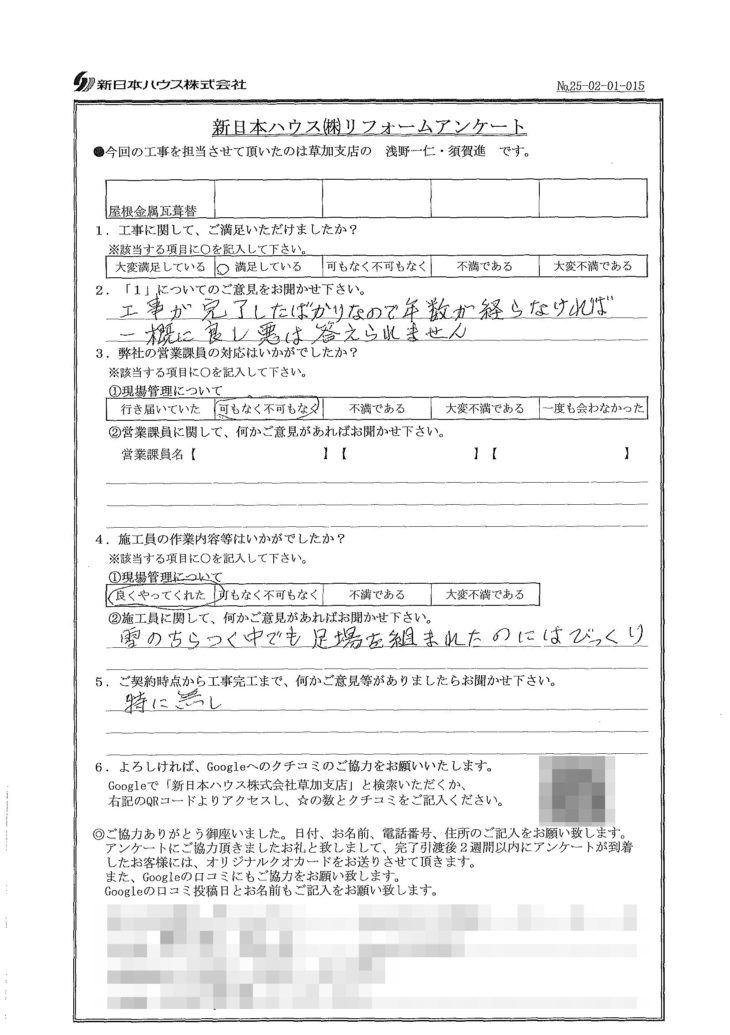 新日本ハウス株式会社
№25-02-01-015
新日本ハウス㈱リフォームアンケート
●今回の工事を担当させて頂いたのは草加支店の 浅野一仁・須賀進 です。
屋根金属瓦葺替
1．工事に関して、ご満足いただけましたか？
※該当する項目に○を記入して下さい。
大変満足している ○ 満足している 可もなく不可もなく 不満である 大変不満である
2．「1」についてのご意見をお聞かせ下さい。
工事が完了したばかりなので年数が経らなければ
一概に良し悪は答えられません
3．弊社の営業課員の対応はいかがでしたか？
※該当する項目に○を記入して下さい。
①現場管理について
行き届いていた 可もなく不可もなく 不満である 大変不満である 一度も会わなかった
②営業課員に関して、何かご意見があればお聞かせ下さい。
営業課員名【 】【 】【 】
4．施工員の作業内容等はいかがでしたか？
※該当する項目に○を記入して下さい。
①現場管理について
良くやってくれた 可もなく不可もなく 不満である 大変不満である
②施工員に関して、何かご意見があればお聞かせ下さい。
雪のちらつく中でも足場を組まれたのにはびっくり
5．ご契約時点から工事完工まで、何かご意見等がありましたらお聞かせ下さい。
特に無し
6．よろしければ、Googleへのクチコミのご協力をお願いいたします。
Googleで「新日本ハウス株式会社草加支店」と検索いただくか、
右記のQRコードよりアクセスし、☆の数とクチコミをご記入ください。
◎ご協力ありがとう御座いました。日付、お名前、電話番号、住所のご記入をお願い致します。
アンケートにご協力頂きましたお礼と致しまして、完了引渡後２週間以内にアンケートが到着
したお客様には、オリジナルクオカードをお送りさせて頂きます。
また、Googleの口コミにもご協力をお願い致します。
Googleの口コミ投稿日とお名前もご記入をお願い致します。